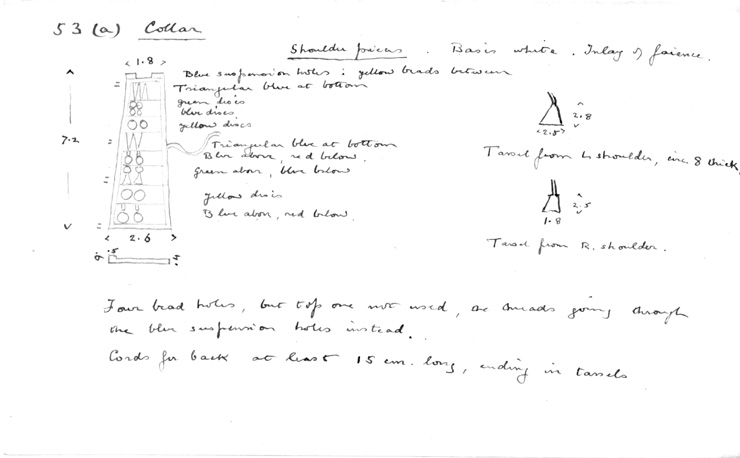 53 (a) Collar
Shoulder pieces. Basis white. Inlay of faience.
< 1.8 >
Blue suspension holes: yellow beads between
Triangular blue at bottom
green discs
blue discs
yellow discs
Triangular blue at bottom
Blue above, red below.
Green above, blue below
Yellow discs
Blue above, red below.
7.2
< 2.6 >
.5
2.8
<2.5>
Tassel from L shoulder, circ. 8 thick
2.5
1.8
Tassel from R. shoulder.
Four bead holes, but top one not used, the threads going through
the blue suspension holes instead.
Cords for back at least 15 cm. long, ending in tassels